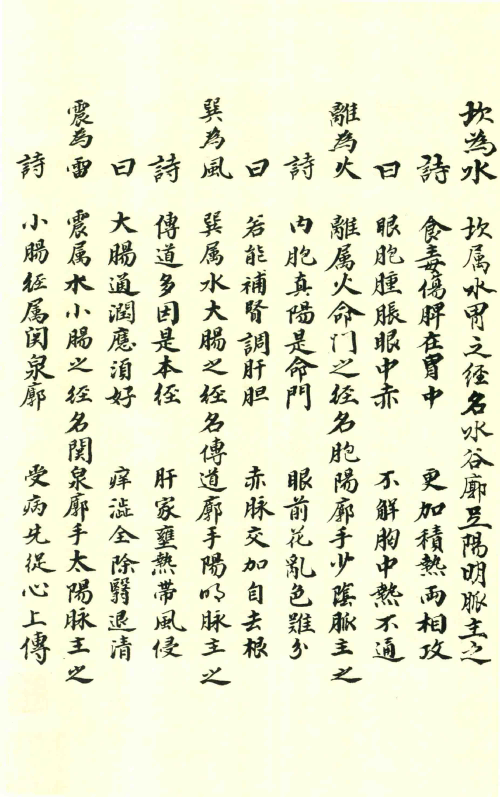 坎為水 坎属水胃之經名水谷廓足陽明脈主之
詩 食毒傷脾在胃中 更加積熱両相攻
曰 眼胞腫脹眼中赤 不解胸中熱不通
離為火 離属火命门之經名胞陽廓手少陰脈主之
詩 内胞真陽是命門 眼前花亂色難分
曰 若能補腎調肝胆 赤脉交加自去根
巽為風 巽属水大腸之經名傳道廓手陽明脉主之
詩 傳道多因是本経 肝家壅熱帯風侵
曰 大腸通潤應須好 痒澁全除翳退清
震為雷 震属水小腸之経名関泉廓手太陽脉主之
詩 小腸経属関泉廓 受病先従心上傳